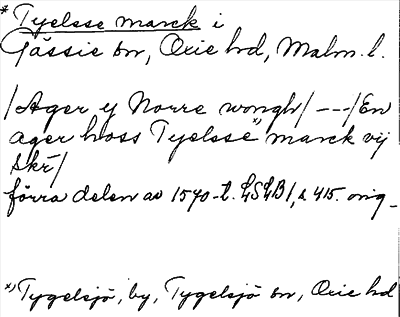 * Tyelsse marck i
Gässie sn, Oxie hd, Malm. l.
/Ager y Norre wongh/ ---/En
ager hoss Tyelsse x) marck vij
skr/
förra delen av 1570-t. LSLB 1, s 415. orig_
x) Tygelsjö, by, Tygelsjö sn, Oxie hd